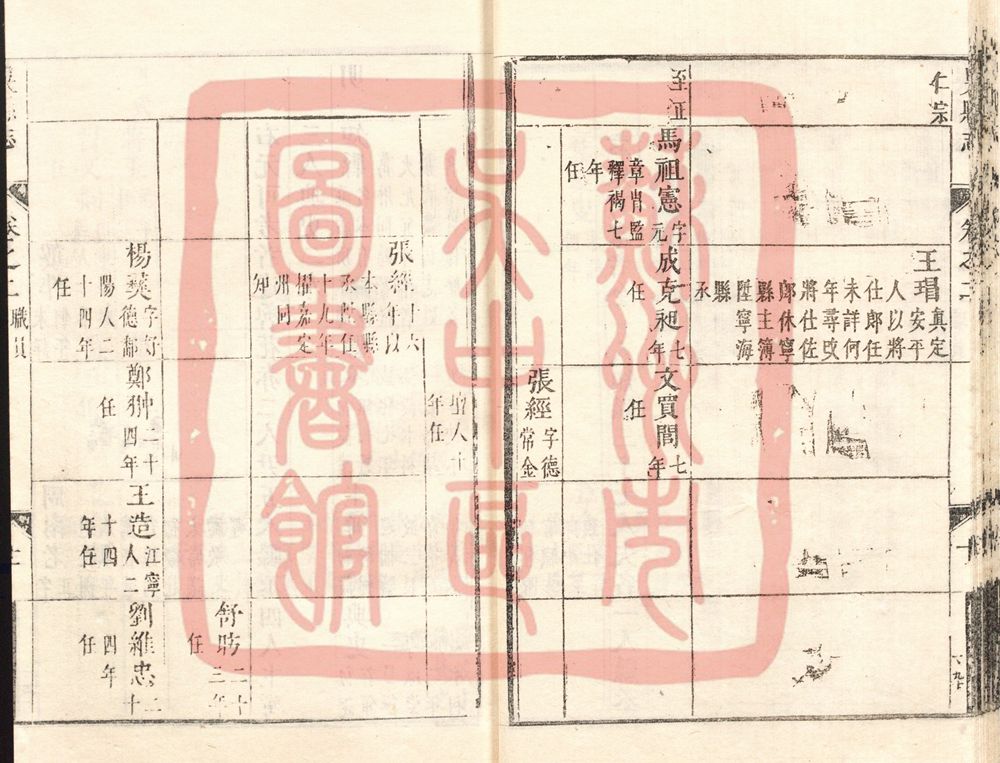 仁宗
王瑁真定
安平
人以將
仕郎任
未詳何
年尋改
將仕佐
郎休寧
縣主簿
陞寧海
縣
丞
至正
馬祖憲字元
章肖監
釋褐七
年
任
成克昶七年
任
文質閭七年
任
張經字德
常金
壇人十
年任
張經十六
年以
本縣縣
丞陞任
十九年
擢嘉定
州同
知
舒昉二十
三年
任
楊彝字彞
德鄱
陽人二
十四年
任
鄭翀二十
四年
任
王造江寧
人二
十四
年任
劉維忠二十
四年
任
卷之二
職員
蘇州市
吳中區
圖書館